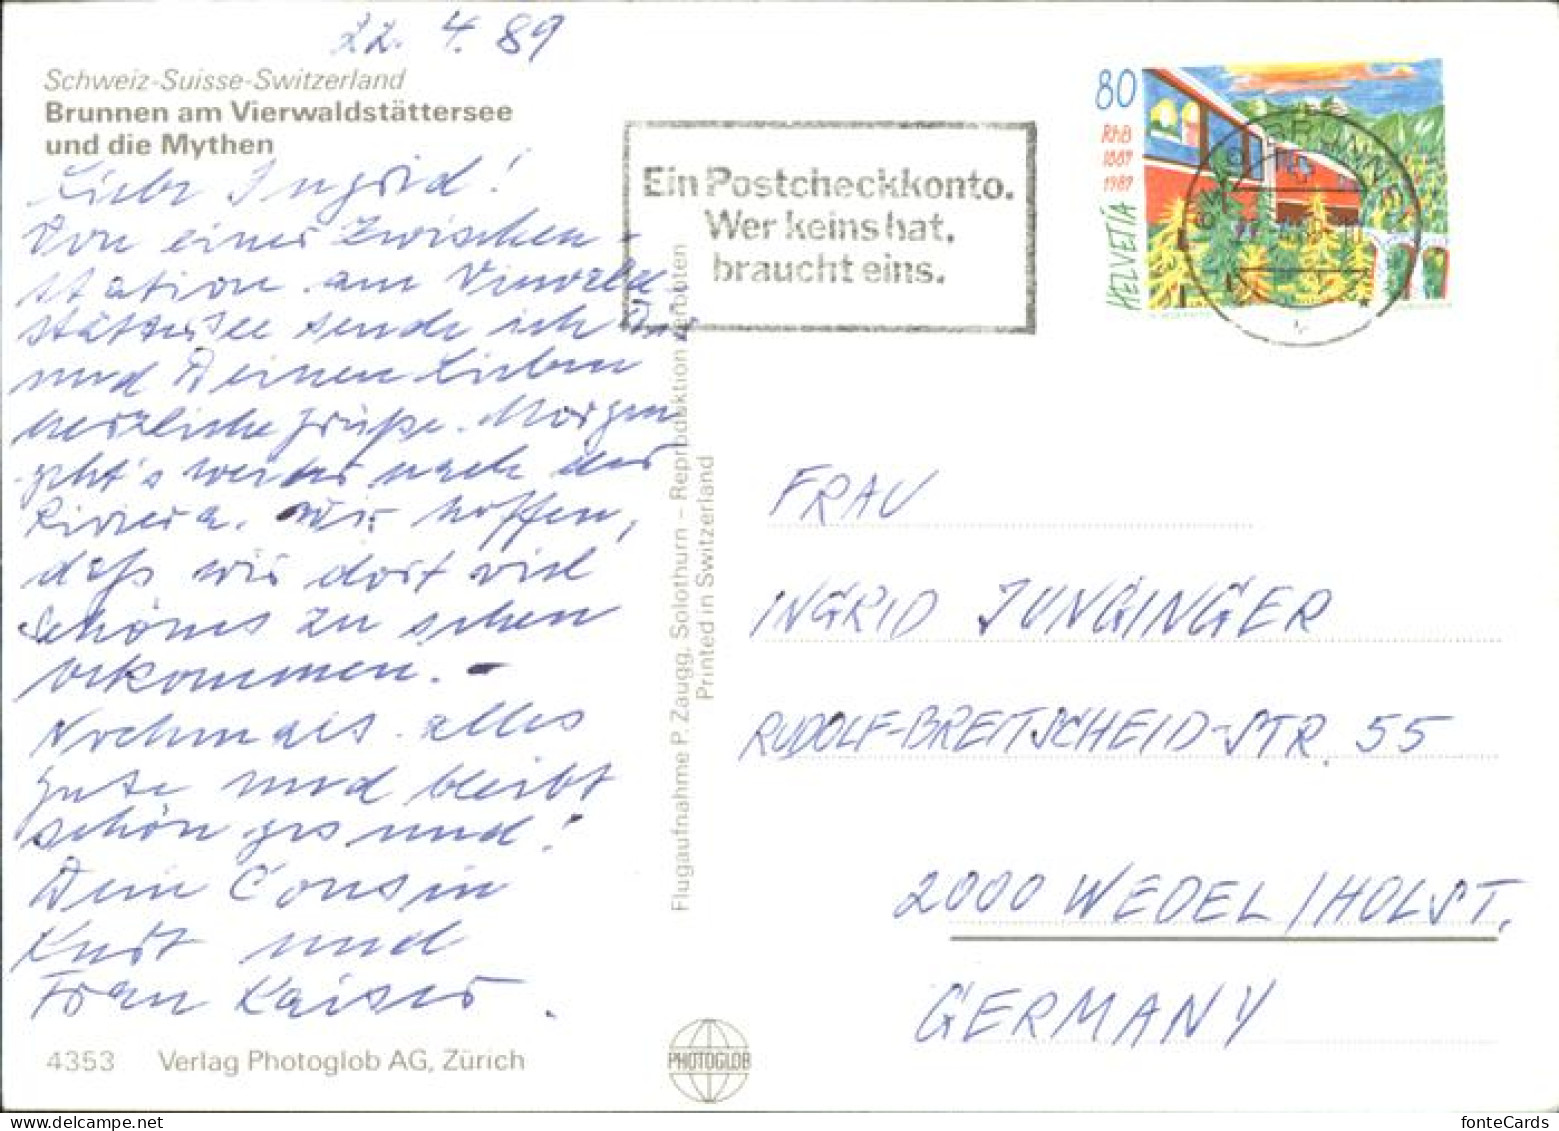 22. 4. 89
Schweiz-Suisse-Switzerland
Brunnen am Vierwaldstättersee
und die Mythen
Liebe Ingrid!
Von einer Zwischen-
station am Vierwald-
stättersee sende ich Dir
und Deinen Lieben
herzliche Grüße. Morgen
geht's weiter nach der
Riviera. Wir hoffen,
daß wir dort viel
Schönes zu sehen
bekommen. -
Nochmals alles
Gute und bleibt
schön gesund!
Dein Cousin
Kurt und
Frau Kaiser.
4353 Verlag Photoglob AG, Zürich
PHOTOGLOB
Flugaufnahme P. Zaugg, Solothurn – Reproduktion verboten
Printed in Switzerland
Ein Postcheckkonto.
Wer keins hat,
braucht eins.
80
RhB
1889
1989
HELVETIA
BRUNNEN
FRAU
INGRID JUNGINGER
RUDOLF-BREITSCHEID-STR. 55
2000 WEDEL/HOLST.
GERMANY
fonteCards